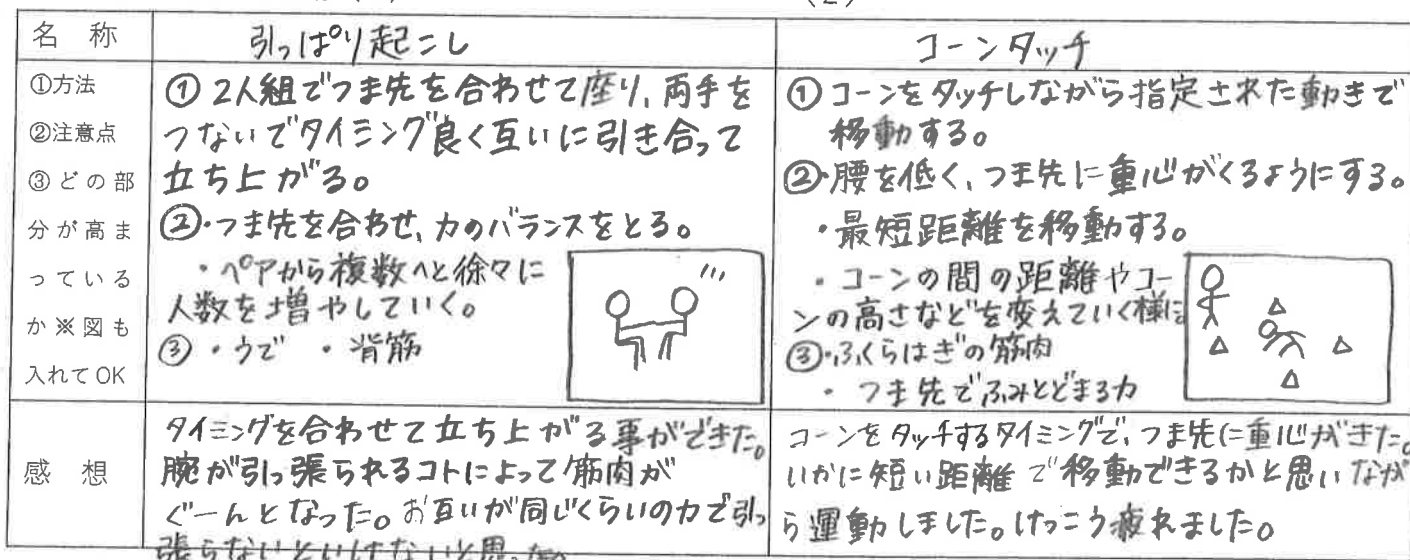 (2)
名 称
引っぱり起こし
コーンタッチ
①方法
②注意点
③どの部
分が高ま
っている
か※図も
入れてOK
① 2人組でつま先を合わせて座り、両手を
つないでタイミング良く互いに引き合って
立ち上がる。
②・つま先を合わせ、力のバランスをとる。
・ペアから複数へと徐々に
人数を増やしていく。
③ ・うで ・背筋
① コーンをタッチしながら指定された動きで
移動する。
②・腰を低く、つま先に重心がくるようにする。
・最短距離を移動する。
・コーンの間の距離やコー
ンの高さなどを変えていく様に
③・ふくらはぎの筋肉
・つま先でふみとどまる力
感 想
タイミングを合わせて立ち上がる事ができた。
腕が引っ張られるコトによって筋肉が
ぐーんとなった。お互いが同じくらいの力で引っ
張らないといけないと思った。
コーンをタッチするタイミングで、つま先に重心がきた。
いかに短い距離で移動できるかと思いなが
ら運動しました。けっこう疲れました。